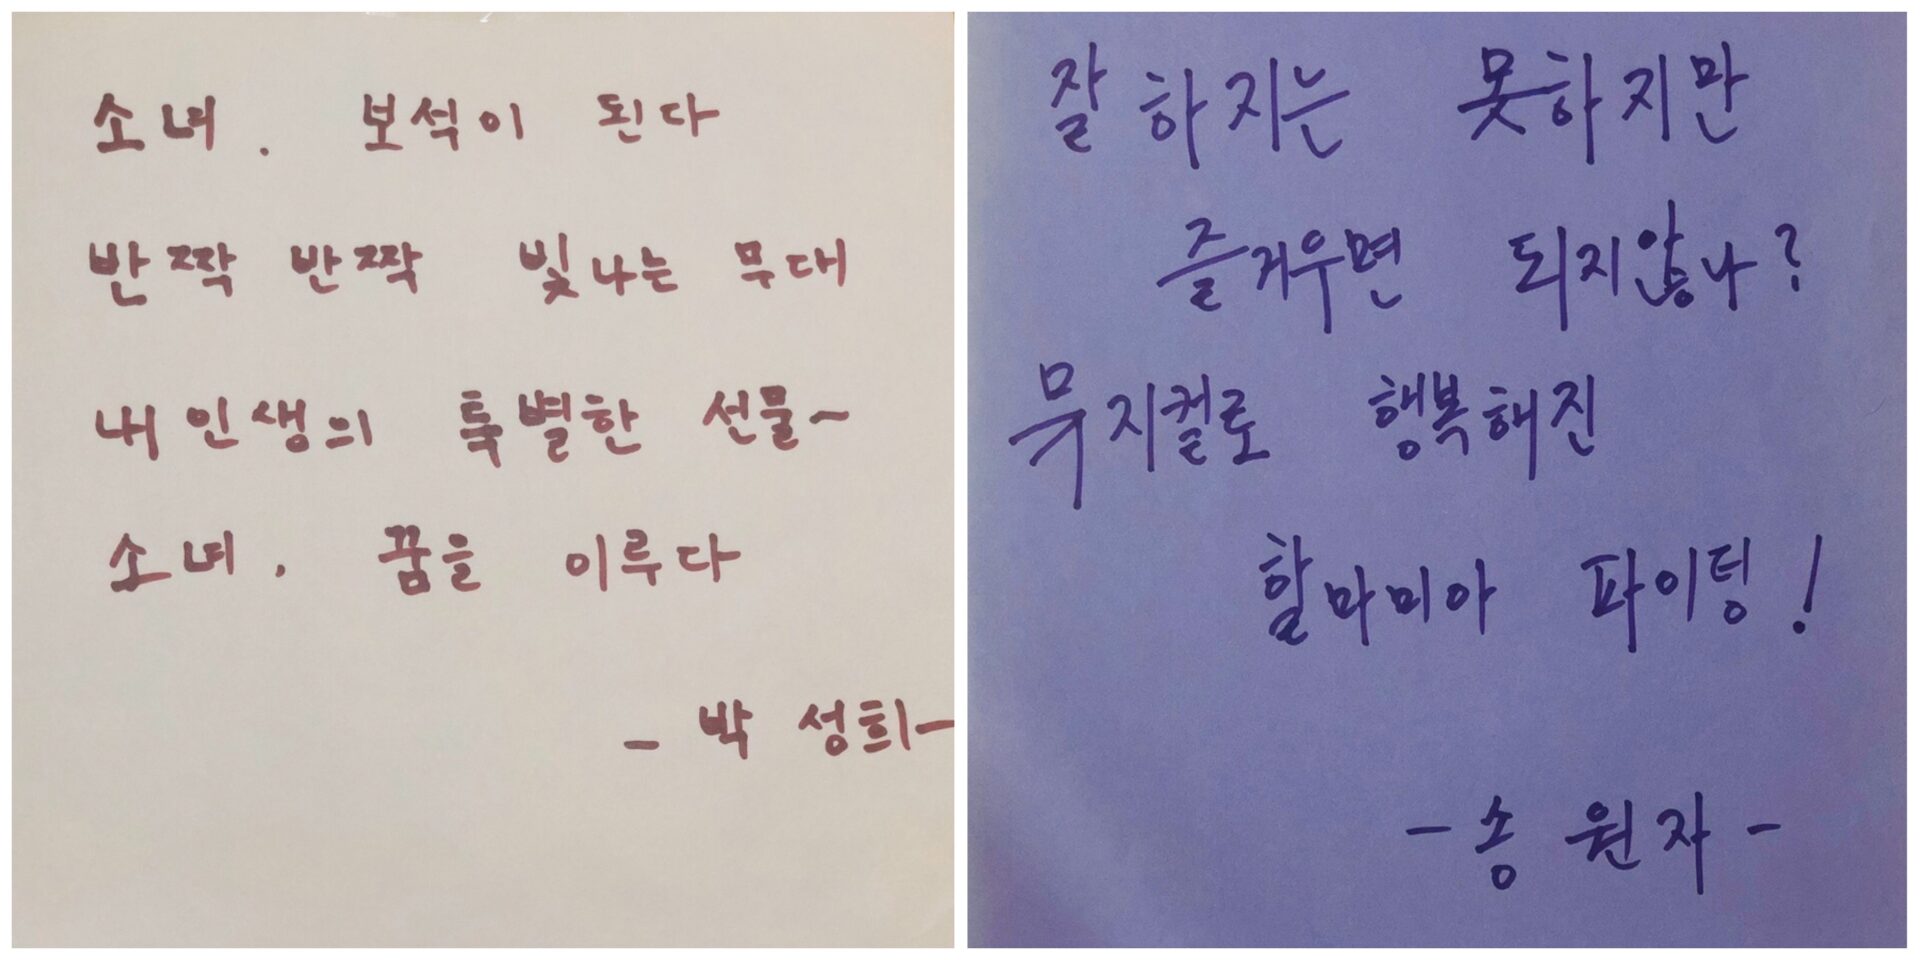 소녀. 보석이 된다
반짝 반짝 빛나는 무대
내 인생의 특별한 선물~
소녀, 꿈을 이루다
- 박 성희-
잘하지는 못하지만
즐거우면 되지않나?
뮤지컬로 행복해진
할마미아 파이팅!
- 송 원자 -